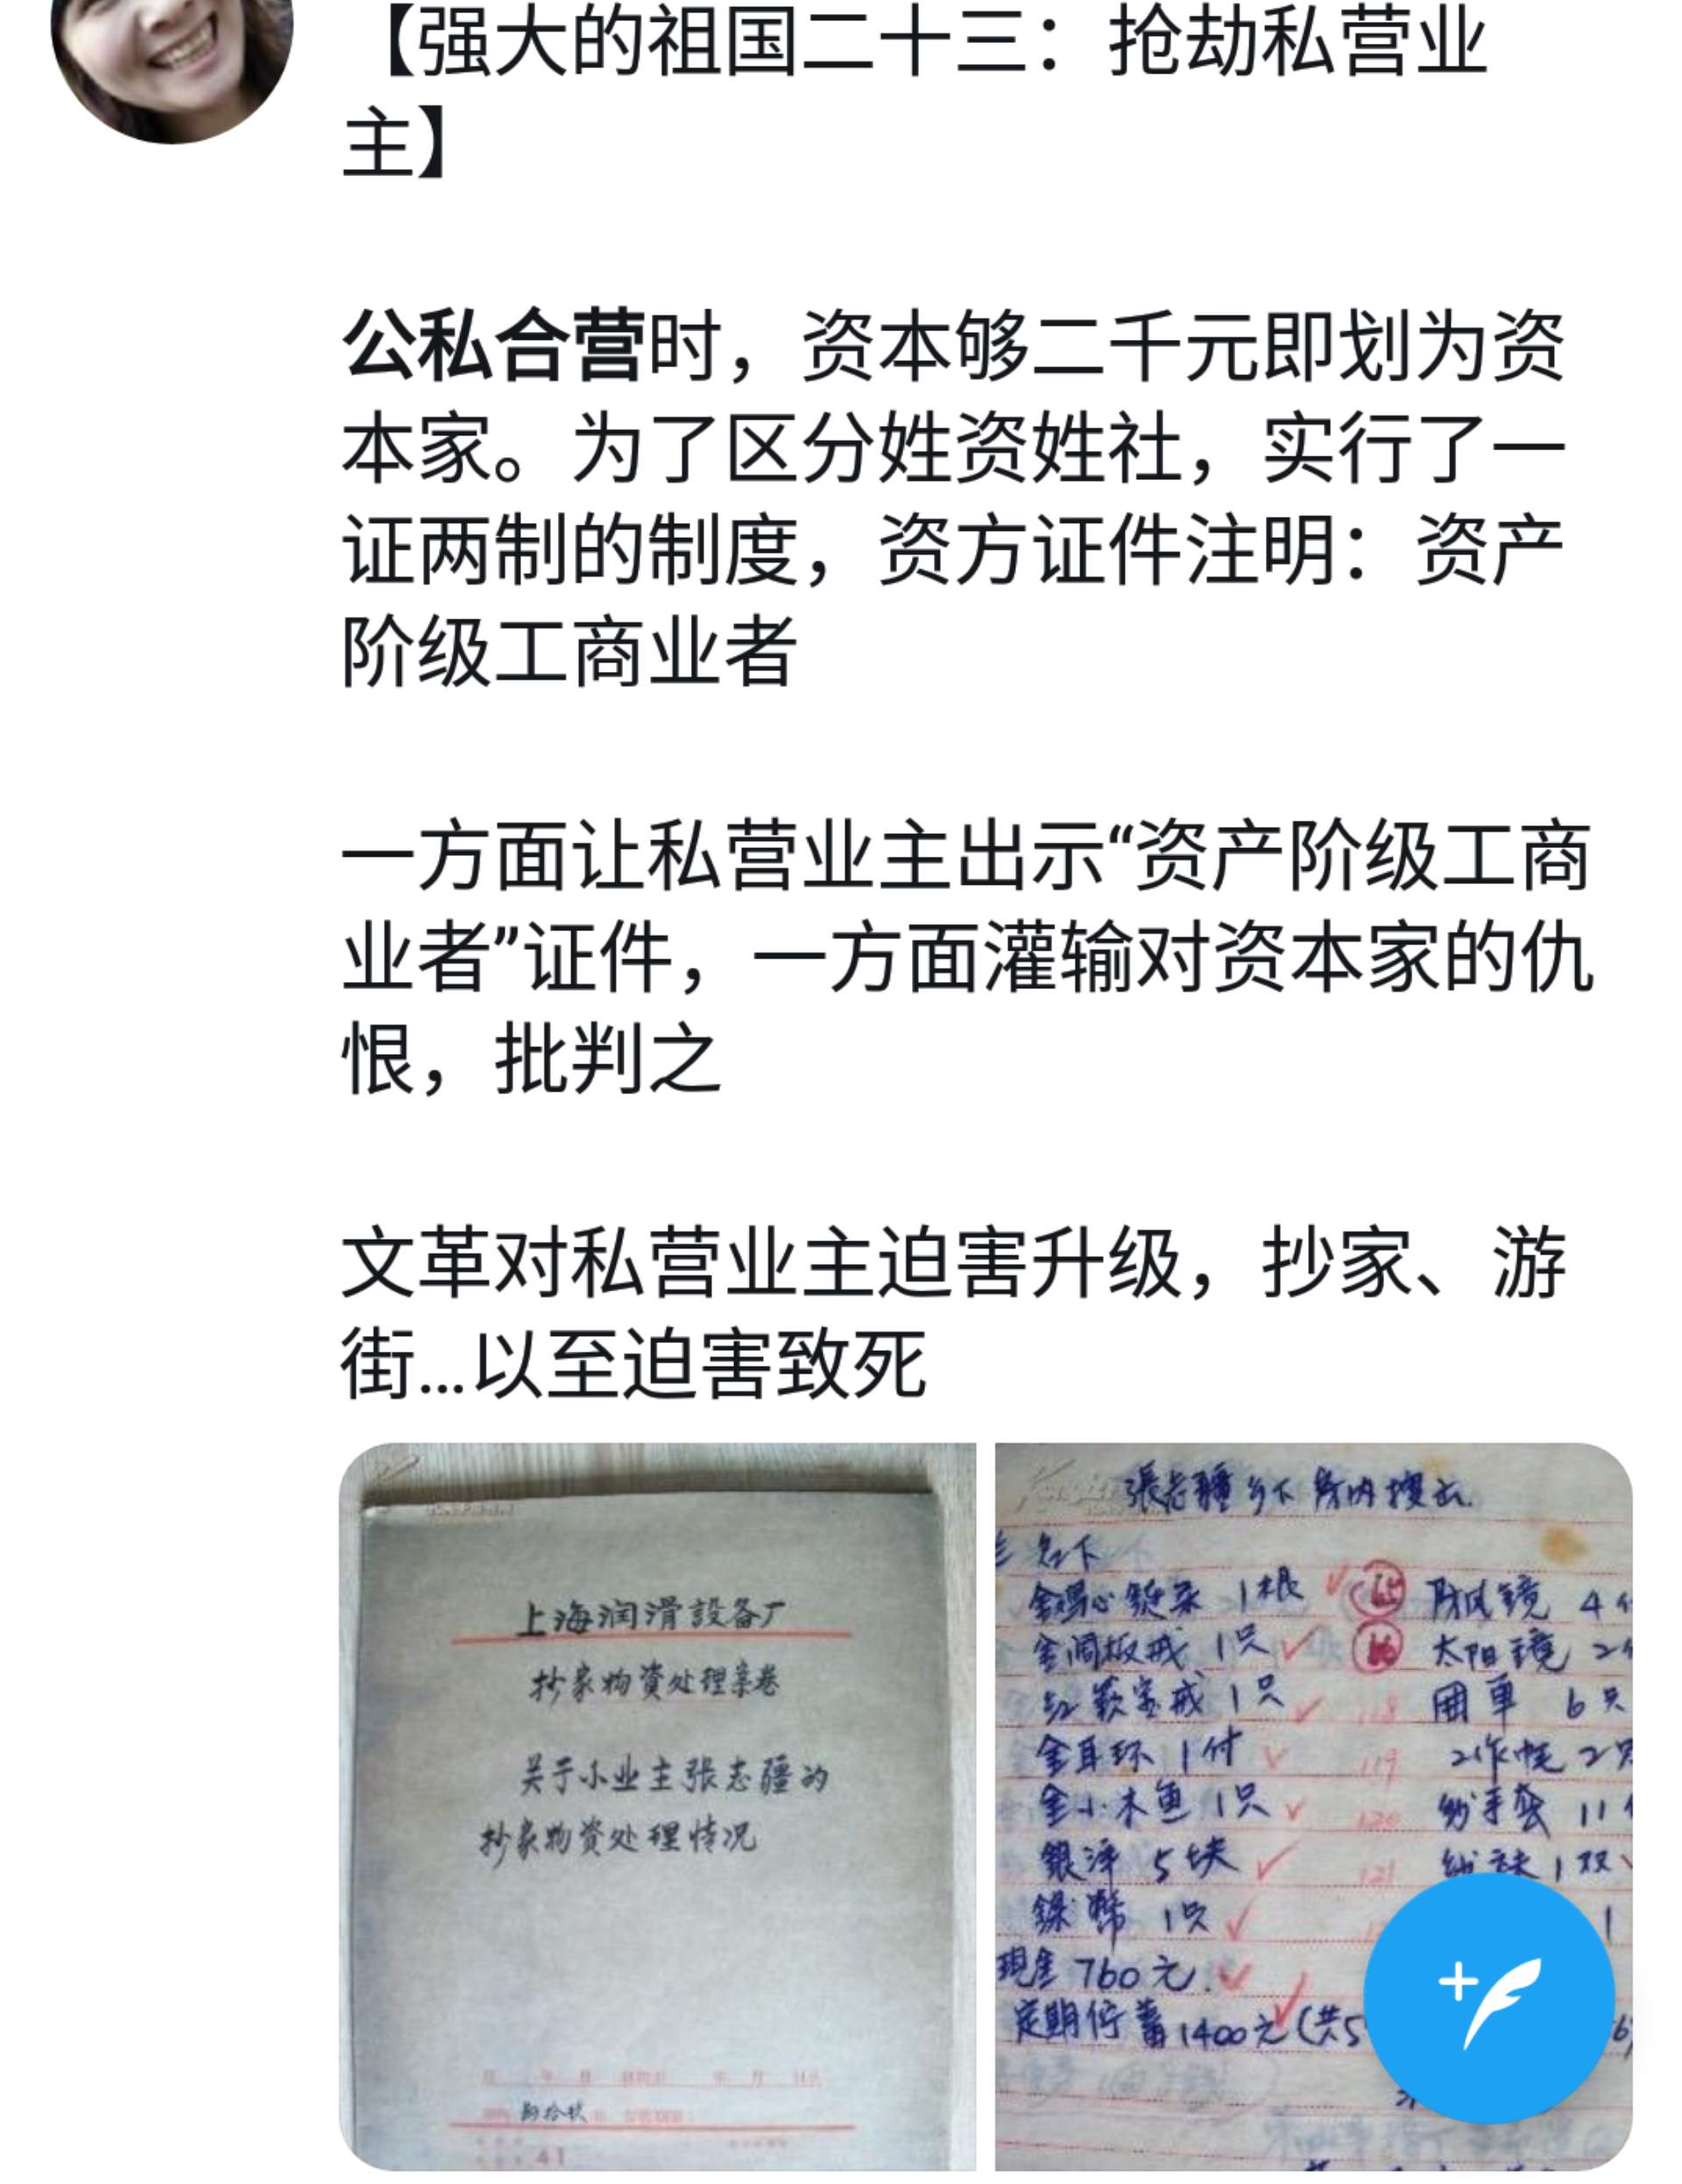 【强大的祖国二十三：抢劫私营业
主】
公私合营时，资本够二千元即划为资
本家。为了区分姓资姓社，实行了一
证两制的制度，资方证件注明：资产
阶级工商业者
一方面让私营业主出示“资产阶级工商
业者”证件，一方面灌输对资本家的仇
恨，批判之
文革对私营业主迫害升级，抄家、游
街...以至迫害致死
上海润滑設备厂
抄家物資处理案卷
关于小业主張志疆的
抄家物資处理情况
41
張志疆乡下房内搜出.
金鸡心鍊条 1根
金耳环 1付
金小木鱼 1只
銀洋 5块
現金 760元.
定期储蓄 1400元(共5
防风镜 4
太阳镜 2
6只
工作帽 2只
纱手套 11
1双
119
120
121